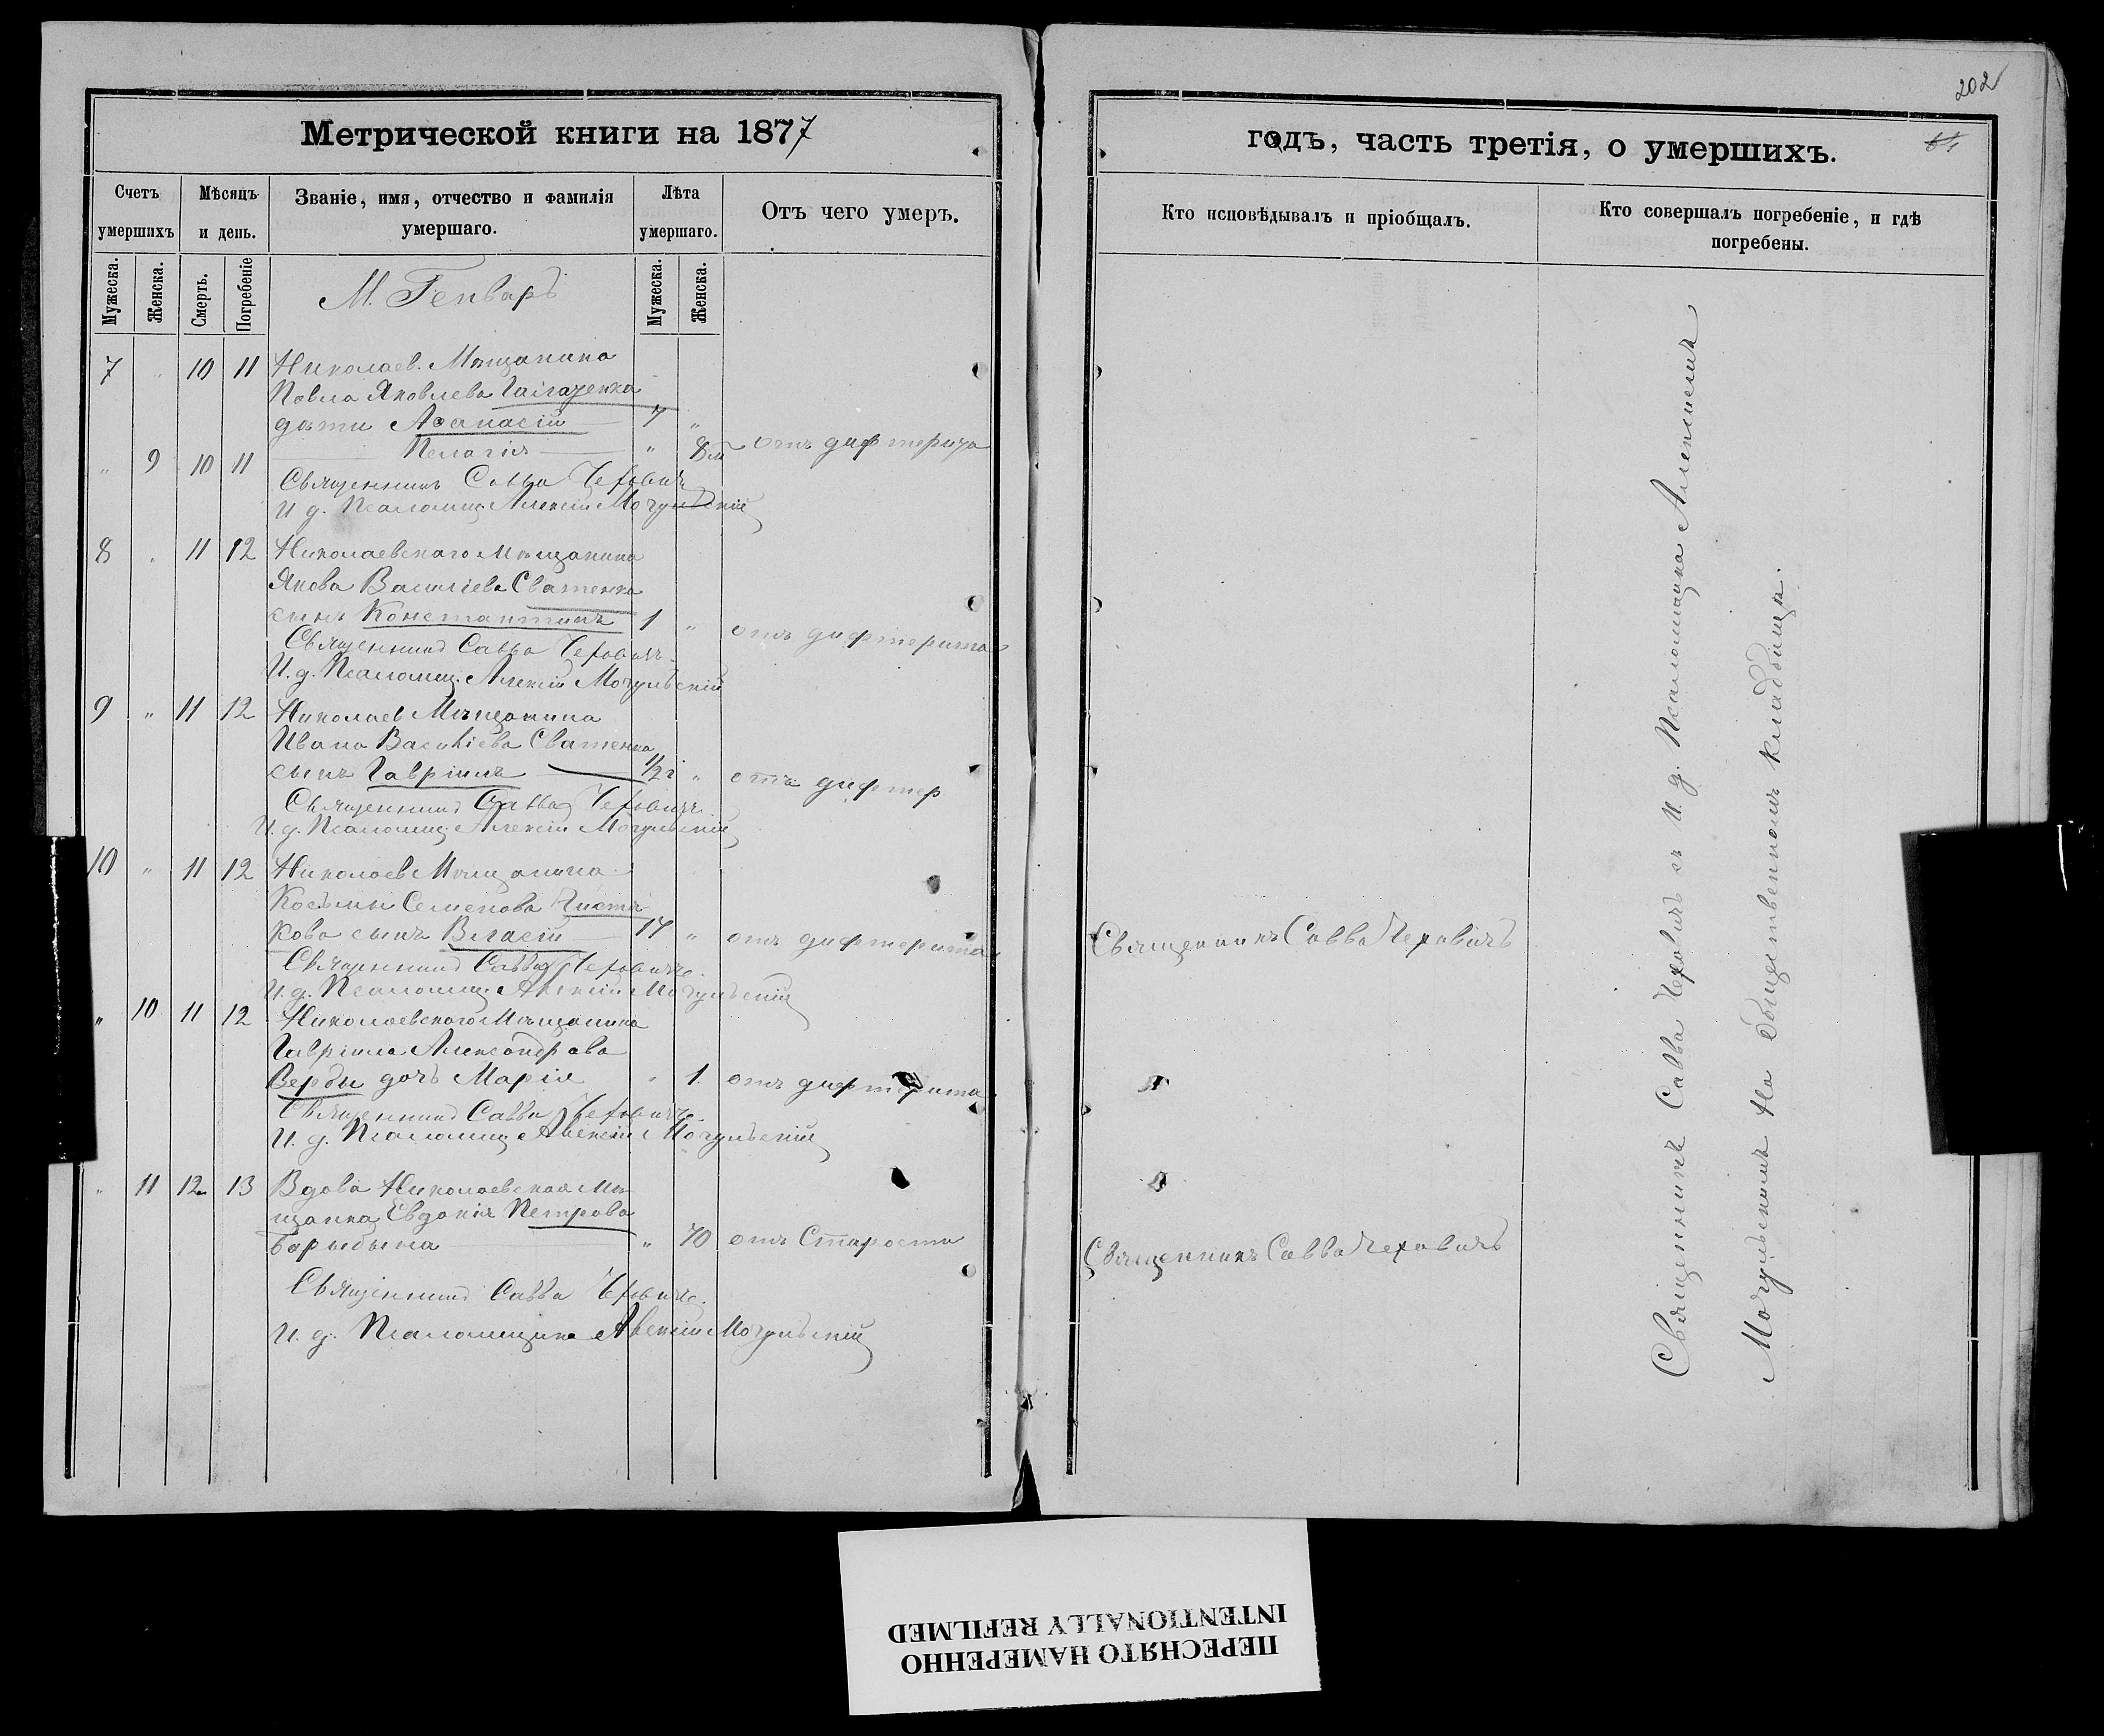 202
Метрической книги на 1877
годъ, часть третія, о умершихъ.
Счетъ умершихъ
Мѣсяцъ и день.
Званіе, имя, отчество и фамилія умершаго.
Лѣта умершаго.
Отъ чего умеръ.
Кто исповѣдывалъ и пріобщалъ.
Кто совершалъ погребеніе, и гдѣ погребены.
Мужеска.
Женска.
Смерть.
Погребеніе
Мужеска.
Женска.
М. Генварь
7 " 10 11 Николаев. Мѣщанина
Павла Яковлева
дѣти Аѳанасій 7 "
" 9 10 11 Пелагія " 8м отъ дифтерита
Священникъ Савва Чехович
И д. Псаломщ. Алексій Мочульскій
8 " 11 12 Николаевскаго Мѣщанина
Якова Василіева Сватенка
сынъ Константинъ 1 " отъ дифтерита
Священникъ Савва Чеховичъ.
И. д. Псаломщ. Алексій Мочульскій
9 " 11 12 Николаев Мѣщанина
Ивана Василіева Сватенка
сынъ Гавріилъ 1/2 г " отъ дифтер
Священникъ Савва Чеховичъ.
И. д. Псаломщ. Алексій Мочульскій
10 " 11 12 Николаев Мѣщанина
Косьмы Семенова Чистя-
кова сынъ Власій 17 " отъ дифтерита
Священникъ Савва Чеховичъ
Священникъ Савва Чеховичъ.
И. д. Псаломщ. Алексій Мочульскій
" 10 11 12 Николаевскаго Мѣщанина
Гавріила Александрова
Вербы дочь Марія " 1 отъ дифтерита
Священникъ Савва Чеховичъ.
И. д. Псаломщ. Алексій Мочульскій
" 11 12 13 Вдова Николаевская Мѣ-
щанка Евдокія Петрова
Барыбина " 70 отъ Старости
Священникъ Савва Чеховичъ
Священникъ Савва Чеховичъ.
И. д. Псаломщика Алексій Мочульскій
Священникъ Савва Чеховичъ съ И. д. Псаломщика Алексіемъ
Мочульскимъ На Общественномъ кладбищѣ.
ПЕРЕСНЯТО НАМЕРЕННО
INTENTIONALLY REFILMED